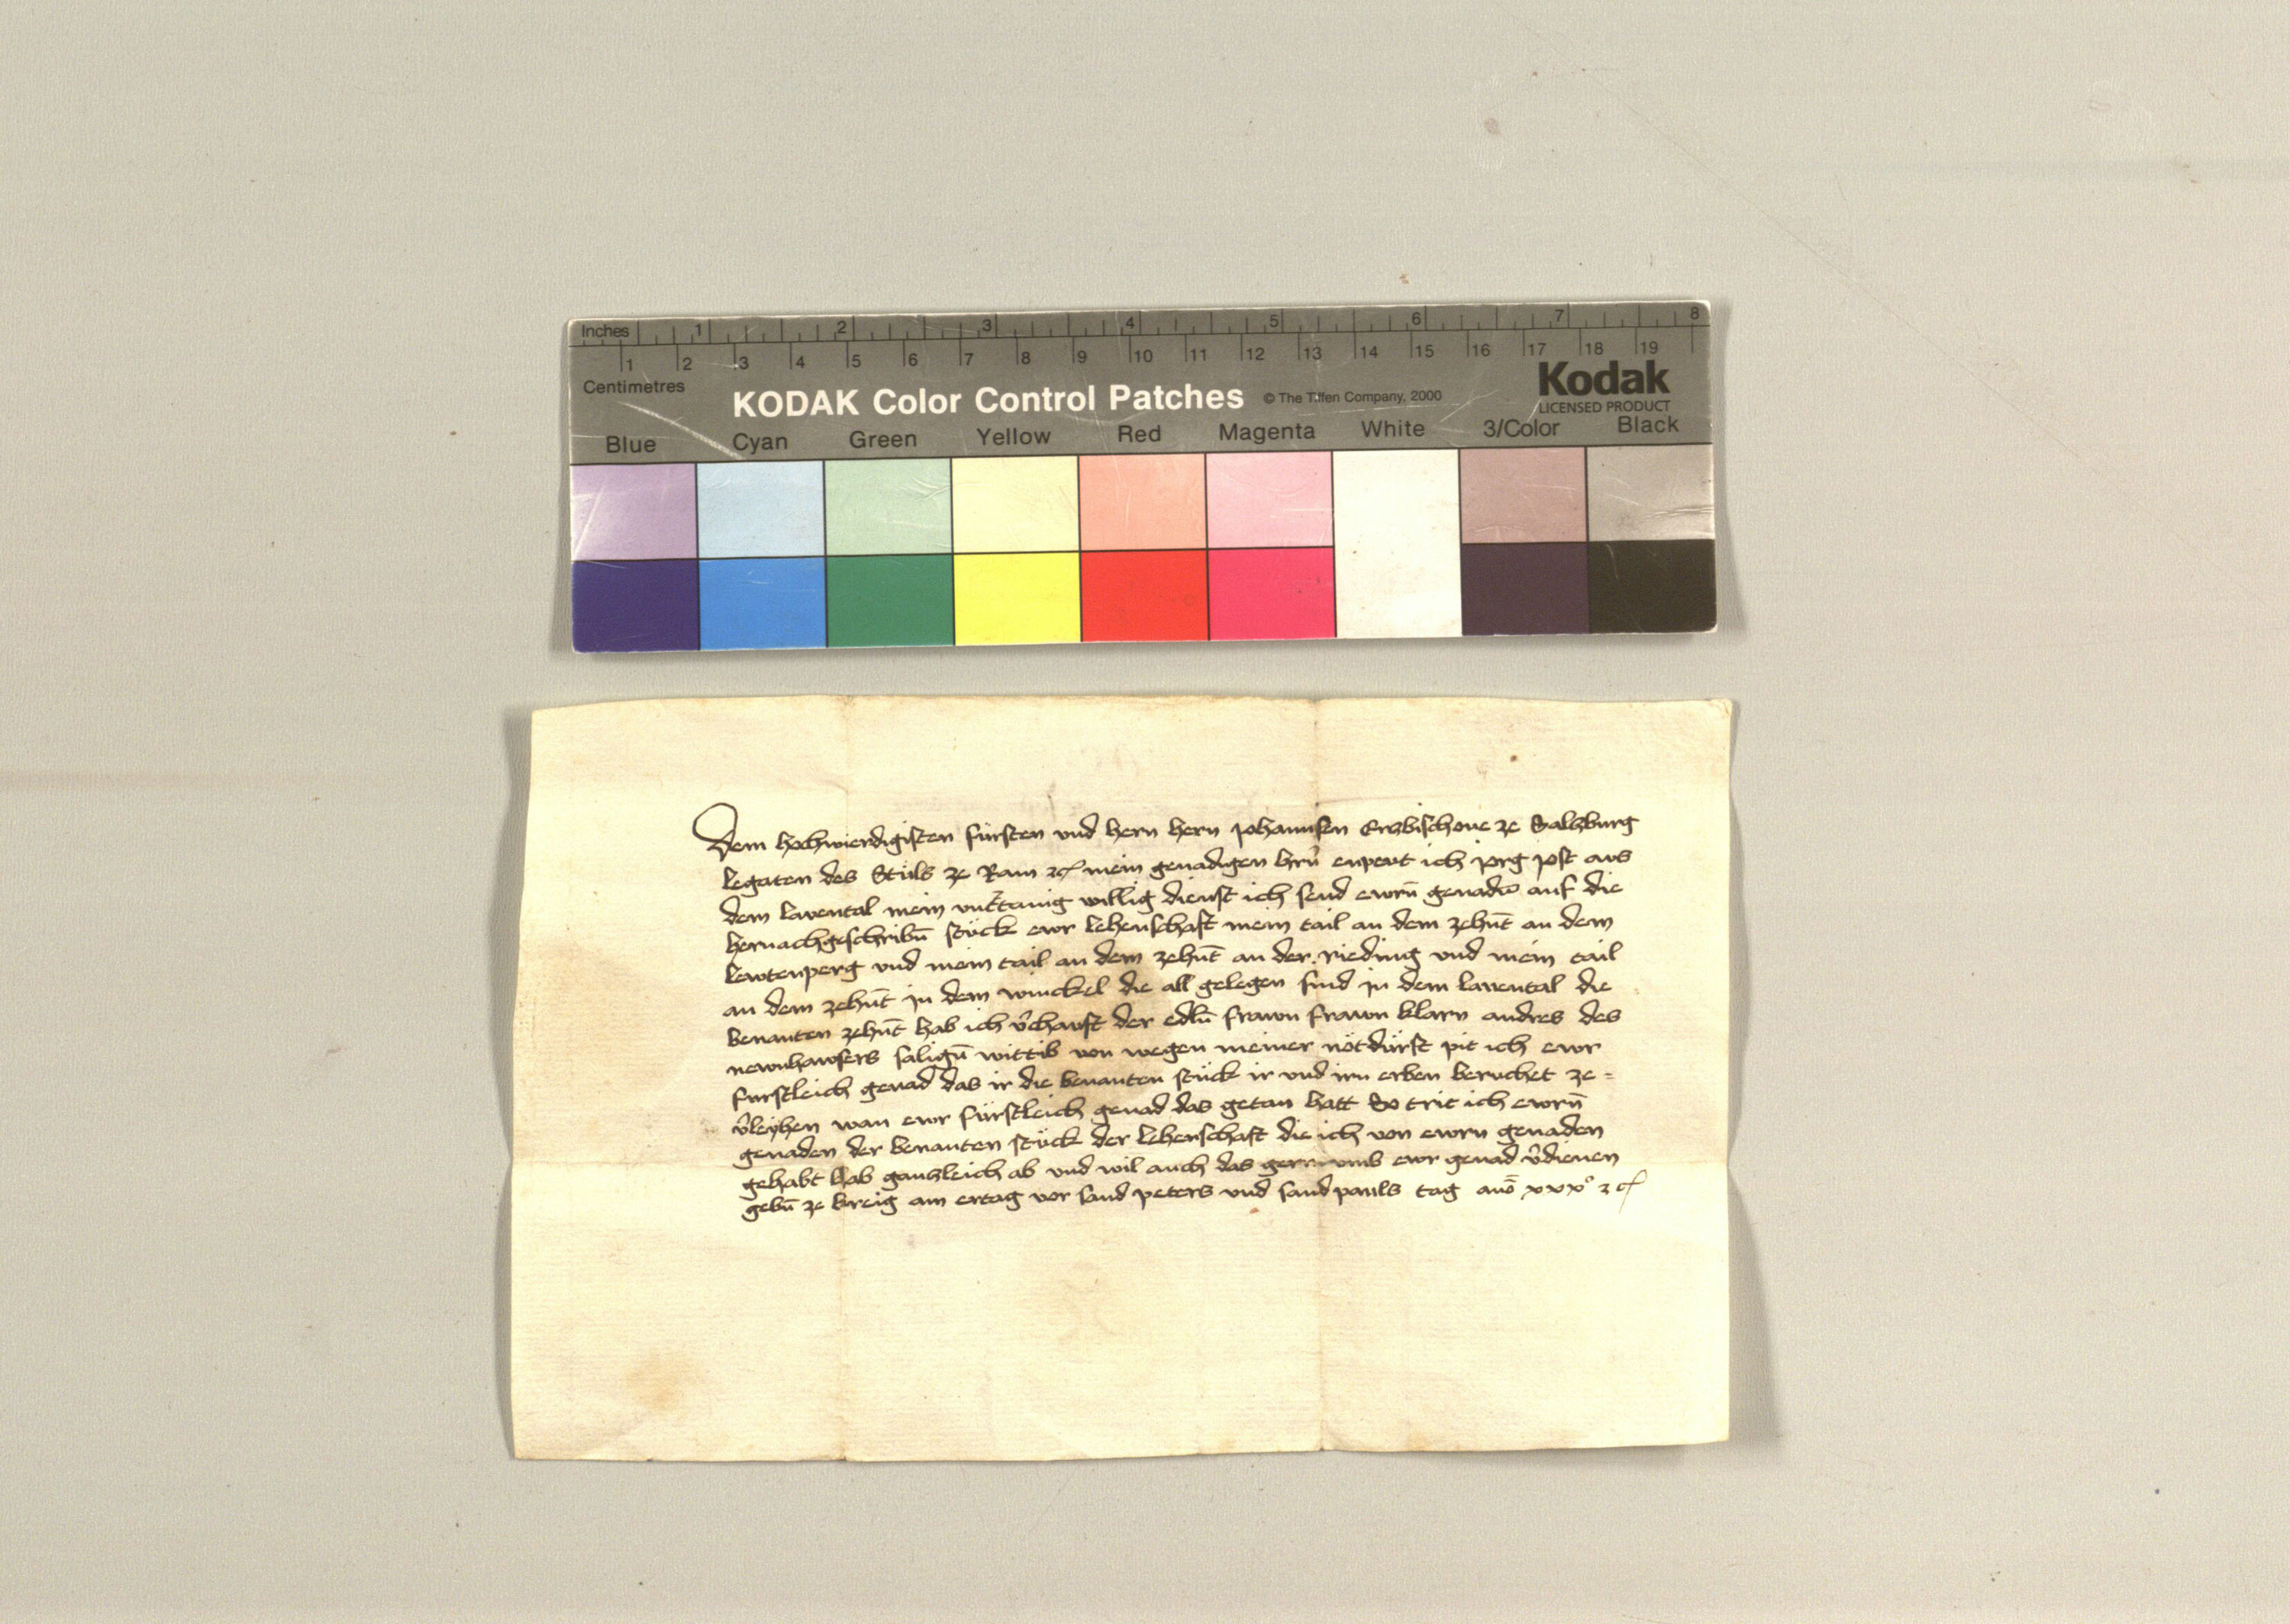 Inches 1 2 3 4 5 6 7 8
1 2 3 4 5 6 7 8 9 10 11 12 13 14 15 16 17 18 19
Centimetres
KODAK Color Control Patches © The Tiffen Company, 2000
Kodak
LICENSED PRODUCT
Blue Cyan Green Yellow Red Magenta White 3/Color Black
Dem hochwierdigisten fürsten vnd hern hern Johannsen Erczbischoue ze Salczburg
legaten des Stüls ze Rom ꝛc mein genadigen hrn̄ enpeut ich jorg jost aus
dem lauental mein vnt̄tanig willig dienst ich send ewrn̄ genadn̄ auf die
hernachgeschribn̄ stück ewr lehenschaft mein tail an dem zehn̄t an dem
lewtenperg vnd mein tail an dem zehn̄t an der rieding vnd mein tail
an dem zehn̄t in dem winckel die all gelegen sind in dem lauental die
benanten zehn̄t hab ich v̄chauft der edln̄ frawn frawn klarn andres des
newnhawsers salign̄ wittib von wegen meiner nötdürft pit ich ewr
furstleich genad das ir die benanten stück ir vnd irn erben beruchet ze =
v̄leyhen wan ewr fürstleich genad das getan hatt So trit ich ewrn̄
genaden der benanten stück der lehenschaft die ich von ewrn genaden
gehabt hab ganczleich ab vnd wil auch das gern vmb ewr genad v̄dienen
gebn̄ ze kreig am ertag vor sand peters vnd sand pauls tag anō xxxº ꝛc